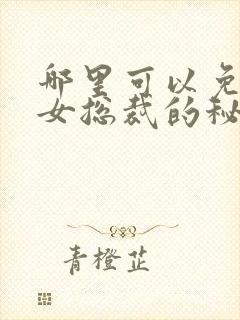 那里可以免
女总裁的秘
青橙芷